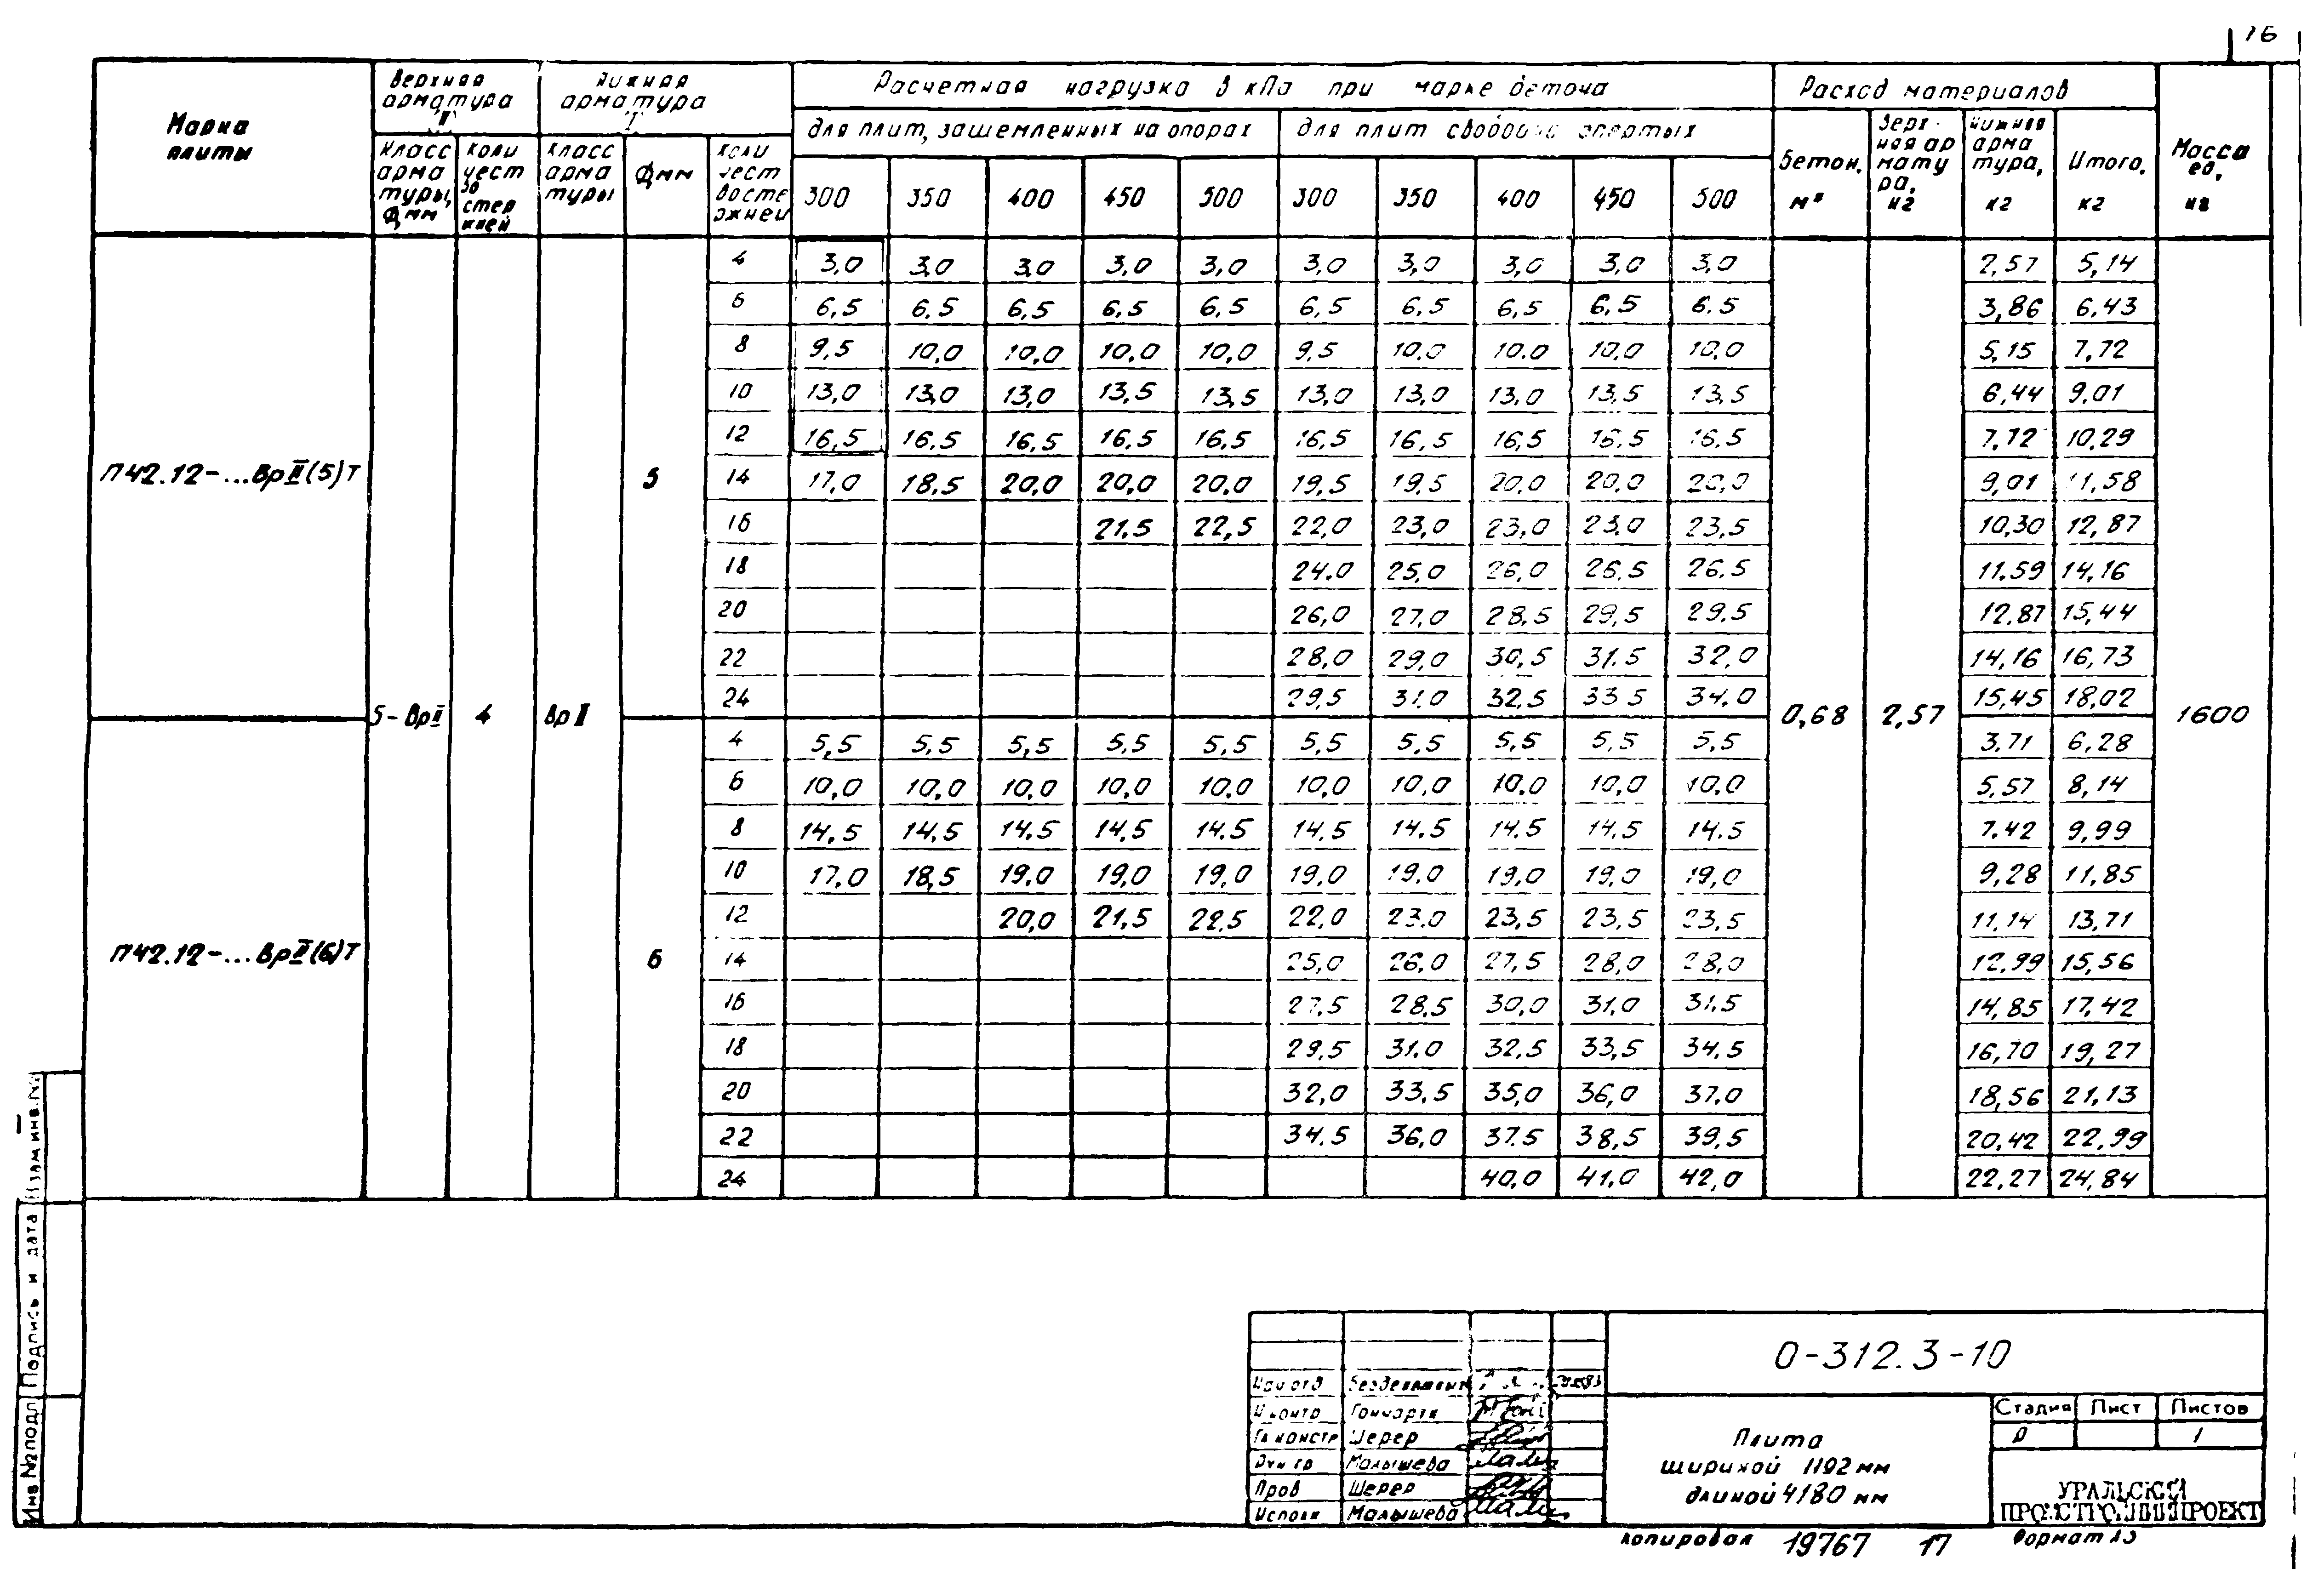 16
Марка плиты
Верхняя арматура "II"
Нижняя арматура "I"
Расчетная нагрузка в кПа при марке бетона
Расход материалов
Масса ед, кг
для плит, защемленных на опорах
для плит свободно опертых
Класс арматуры, Фмм
Количество стержней
Класс арматуры
Фмм
Количество стержней
300 350 400 450 500 300 350 400 450 500
Бетон, м³
Верхняя арматура, кг
Нижняя арматура, кг
Итого, кг
П42.12-...ВрII(5)Т
5-ВрII 4 ВрII 5
4 3,0 3,0 3,0 3,0 3,0 3,0 3,0 3,0 3,0 3,0 2,57 5,14
6 6,5 6.5 6,5 6,5 6,5 6,5 6,5 6,5 6,5 6.5 3,86 6,43
8 9,5 10,0 10,0 10,0 10,0 9,5 10.0 10.0 10,0 10,0 5,15 7,72
10 13,0 13,0 13,0 13,5 13,5 13,0 13,0 13,0 13,5 13,5 6,44 9,01
12 16,5 16,5 16,5 16,5 16,5 16,5 16,5 16,5 16,5 16,5 7,72 10,29
14 17,0 18,5 20,0 20,0 20,0 19,5 19,5 20,0 20,0 20,0 9,01 11,58
16 21,5 22,5 22,0 23,0 23,0 23,0 23,5 10,30 12,87
18 24.0 25,0 26,0 26,5 26,5 11.59 14,16
20 26,0 27,0 28,5 29,5 29,5 12,87 15,44
22 28,0 29,0 30,5 31.5 32,0 14,16 16,73
24 29,5 31.0 32,5 33 5 34,0 15,45 18,02
0,68 2,57 1600
П42.12-...ВрII(6)Т
6
4 5,5 5,5 5,5 5,5 5,5 5,5 5,5 5,5 5,5 5,5 3,71 6,28
6 10,0 10,0 10,0 10,0 10,0 10,0 10,0 10,0 10,0 10,0 5,57 8,14
8 14,5 14,5 14,5 14,5 14.5 14,5 14.5 14.5 14,5 14.5 7.42 9,99
10 17,0 18,5 19,0 19,0 19,0 19,0 19,0 19,0 19,0 19,0 9,28 11,85
12 20,0 21,5 22,5 22,0 23.0 23,5 23,5 23,5 11,14 13,71
14 25,0 26,0 27,5 28,0 28,0 12,99 15,56
16 27,5 28,5 30,0 31,0 31,5 14,85 17,42
18 29,5 31.0 32,5 33,5 34,5 16,70 19,27
20 32,0 33,5 35,0 36,0 37,0 18,56 21,13
22 34.5 36,0 37.5 38,5 39,5 20,42 22,99
24 40,0 41,0 42,0 22,27 24,84
Взам инв. №
Подпись и дата
Инв №подл
0-312.3-10
Нач отд
Н контр
Гл констр Шерер
Рук гр Малышева
Пров Шерер
Исполн Малышева
Плита
шириной 1192 мм
длиной 4180 мм
Стадия Лист Листов
Р 1
УРАЛЬСКИЙ
ПРОМСТРОЙНИИПРОЕКТ
Копировал 19767 17 Формат А3